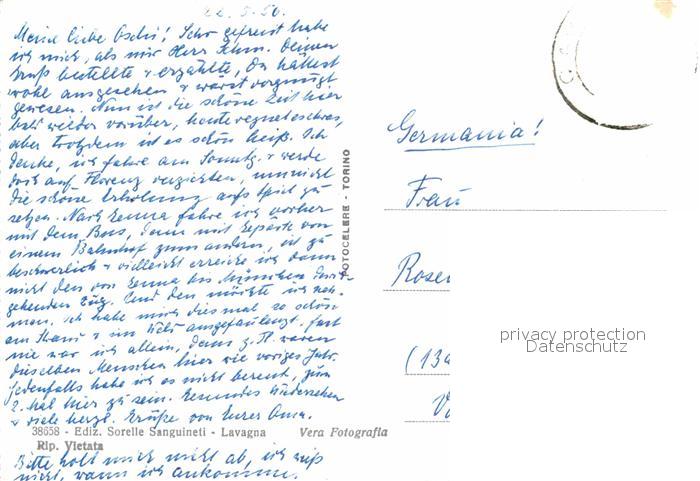 22.5.50.
Meine liebe Oschi! Sehr gefreut habe
ich mich, als mir Herr Schm. Deinen
Gruß bestellte & erzählte, Du hättest
wohl ausgesehen & warst vergnügt
gewesen. Nun ist die schöne Zeit hier
bald wieder vorüber, heute regnet es etwas,
aber trotzdem ist es schön heiß. Ich
denke, ich fahre am Sonntg. & werde
doch auf Florenz verzichten, um nicht
die schöne Erholung aufs Spiel zu
setzen. Nach Genua fahre ich vorher
mit dem Bus, denn mit Gepäck von
einem Bahnhof zum andern, ist zu
beschwerlich & vielleicht erreiche ich dann
nicht den von Genua bis München durch-
gehenden Zug. Und den möchte ich neh-
men. Ich habe mich diesmal so schön
am Strand & im Wald ausgefaulenzt. Fast
nie war ich allein, denn z. Tl. waren
dieselben Menschen hier wie voriges Jahr.
Jedenfalls habe ich es nicht bereut, zum
2. mal hier zu sein. Gesundes Wiedersehen
& viele herzl. Grüße von Eurer Oma.
38658 - Ediz. Sorelle Sanguineti - Lavagna Vera Fotografia
Rip. Vietata
Bitte holt mich nicht ab, ich weiß
nicht, wann ich ankomme.
FOTOCELERE - TORINO
Germania!
Frau
Rosen
(13a
V
privacy protection
Datenschutz